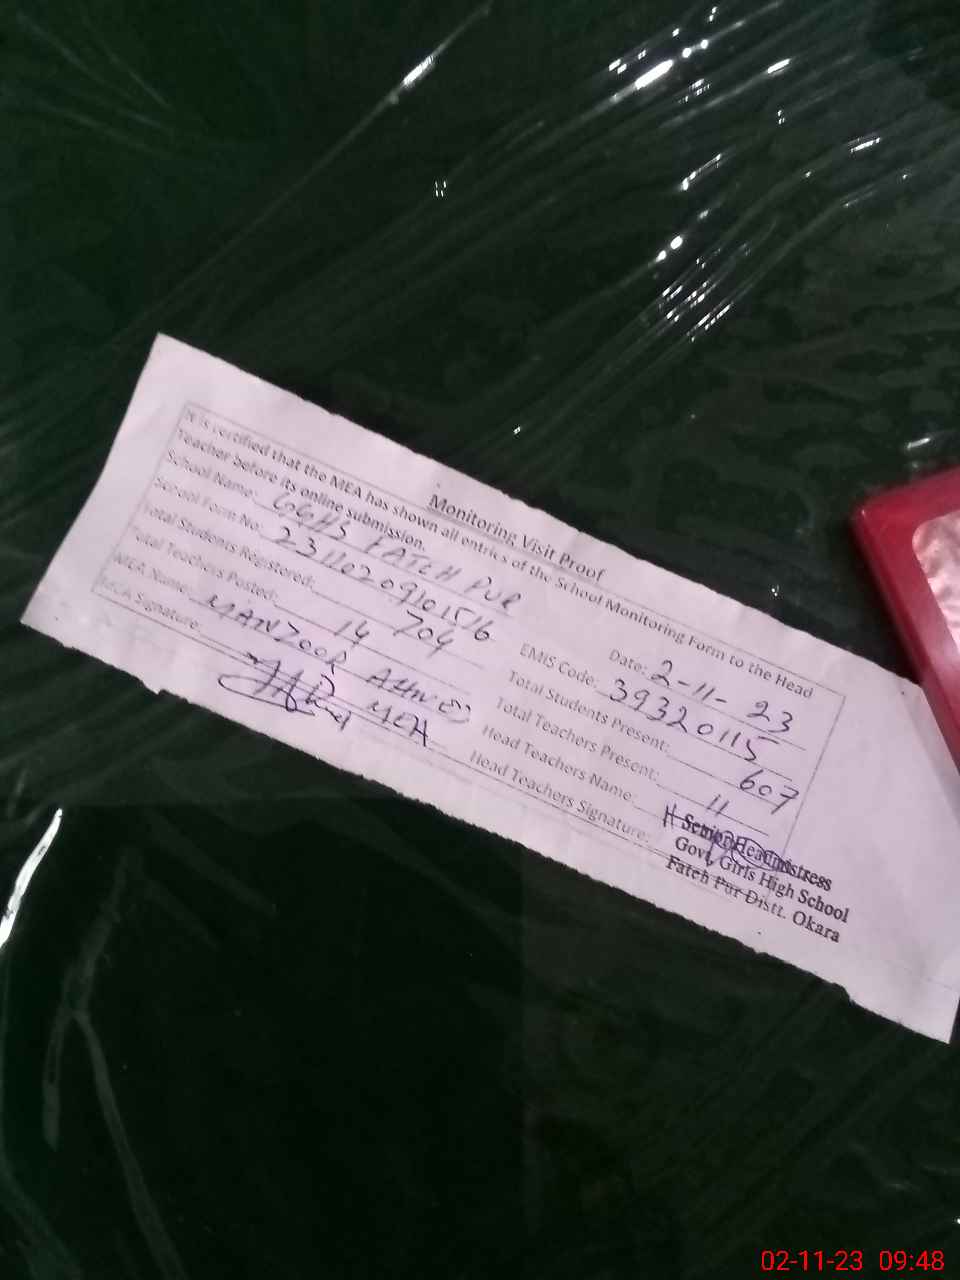 Monitoring Visit Proof
It is certified that the MEA has shown all entries of the School Monitoring Form to the Head
Teacher before its online submission.
Date: 2-11-23
School Name: GGHS FATEH PUR
EMIS Code: 39320115
School Form No: 
Total Students Present: 607
Total Students Registered: 704
Total Teachers Present: 11
Total Teachers Posted: 14
Head Teachers Name:
MEA Name: MANZOOR AHMED
Head Teachers Signature:
MEA Signature: MEA
Senior Headmistress
Govt. Girls High School
Fateh Pur Distt. Okara
02-11-23 09:48